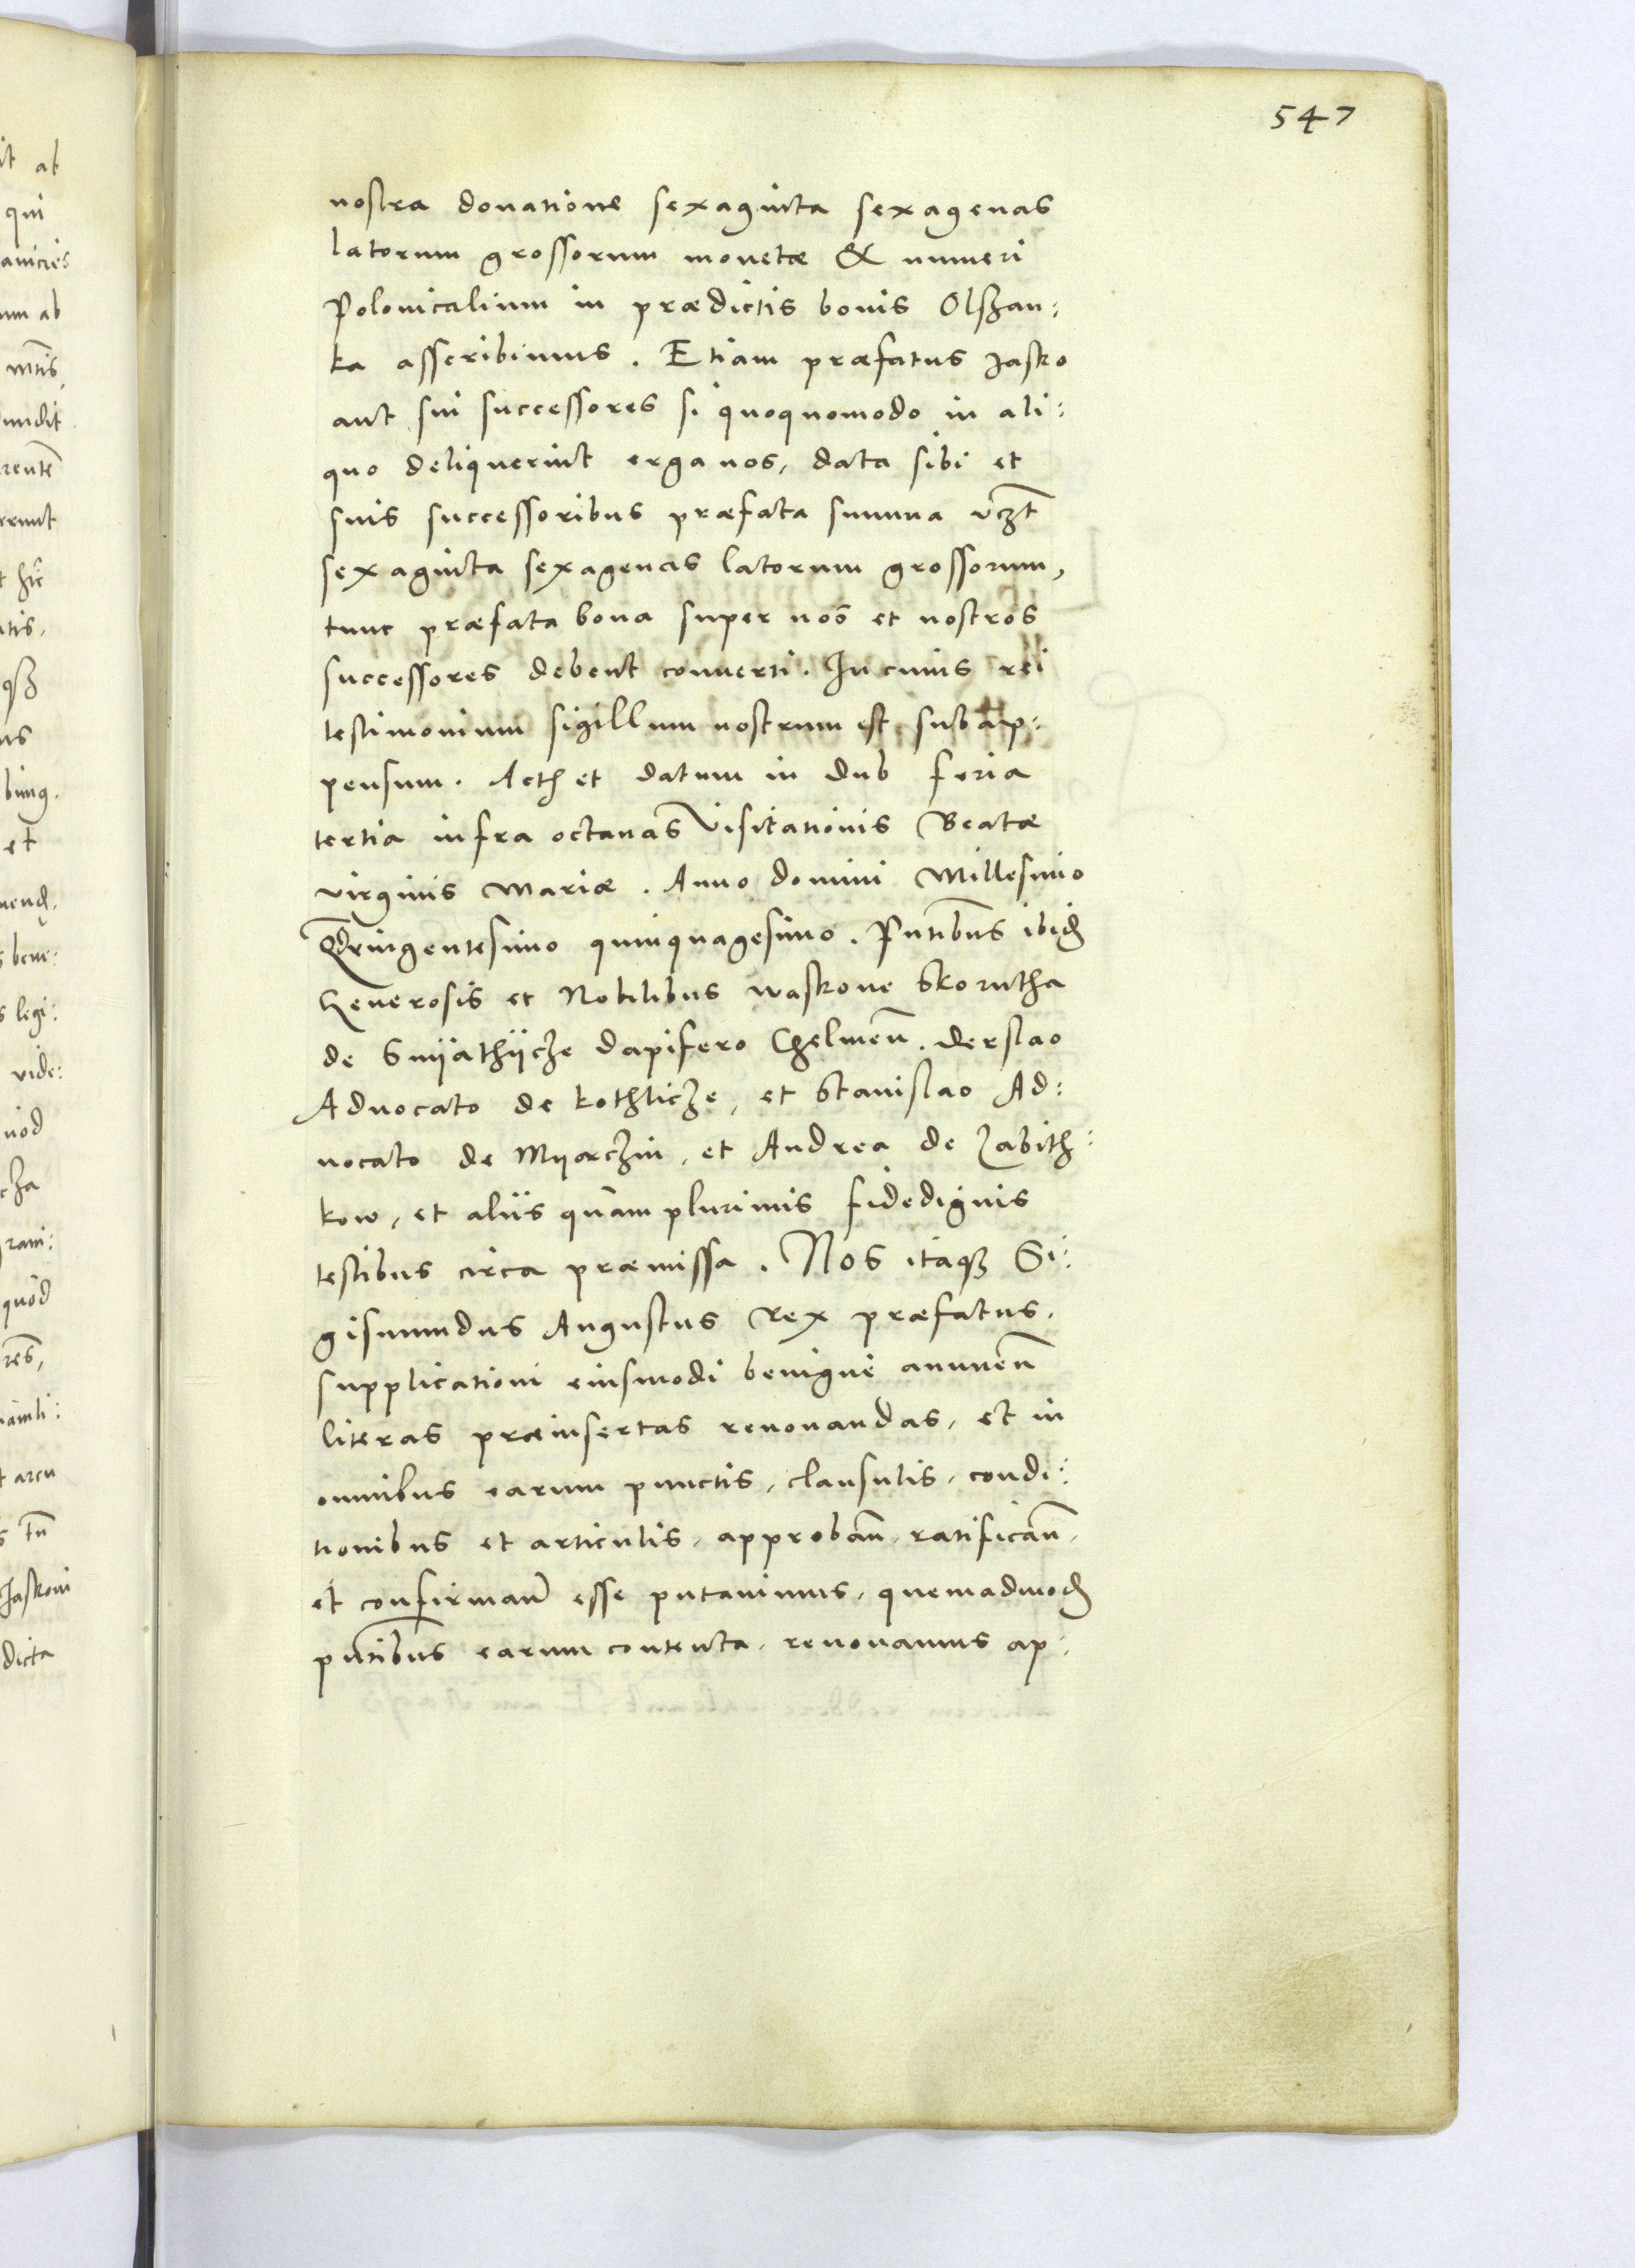 547
nostra donatione sexaginta sexagenas
latorum grossorum monetæ & numeri
Polonicalium in prædictis bonis Olszan:
ka asscribimus. Etiam præfatus Jasko
aut sui successores si quoquomodo in ali:
quo deliquerint erga nos, data sibi et
suis successoribus præfata summa vczt
sexaginta sexagenas latorum grossorum,
tunc præfata bona super nos et nostros
successores debent conuerti. In cuius rei
testimonium sigillum nostrum est subap:
pensum. Acth et datum in dub feria
tertia infra octauas Visitationis Beatæ
virginis Mariæ. Anno domini Millesimo
Qdringentesimo quinquagesimo. Pntibus ibid
Generosis et Nobilibus waskone Skorutha
de Smijathijcze dapifero Chelmen. derslao
Aduocato de kothlicze, et Stanislao Ad:
uocato de Mijarczin, et Andrea de Zabith:
kow, et aliis quam plurimis fidedignis
testibus circa præmissa. Nos itaqz Si:
gismundus Augustus Rex præfatus.
supplicationi eiusmodi benigne annuen
literas præinsertas renouandas, et in
omnibus earum punctis, clausulis, condi:
tionibus et articulis, approban, ratifican,
et confirman esse putauimus, quemadmod
pntibus earum contenta, renouamus ap:
it ab
qui
um ab
mtis,
undit
rentē
rrunt
tis.
qz
us
bimg.
et
legi:
vide:
cza
rani:
quod
res,
arcu
tn
Jaskoni
dicta